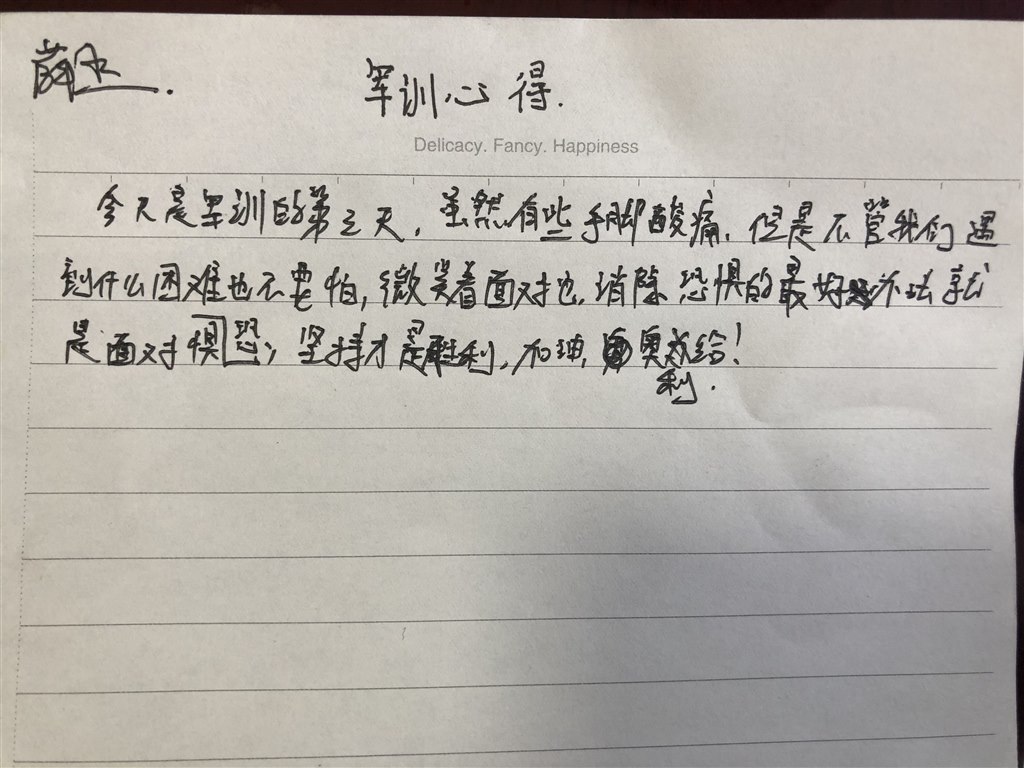 军训心得.
Delicacy. Fancy. Happiness
今天是军训的第之天，虽然有些手脚酸痛，但是不管我们遇
到什么困难也不要怕，微笑着面对也，消除恐惧的最好办法就
是面对惧恐，坚持才是胜利，加油，奥为给！
利.